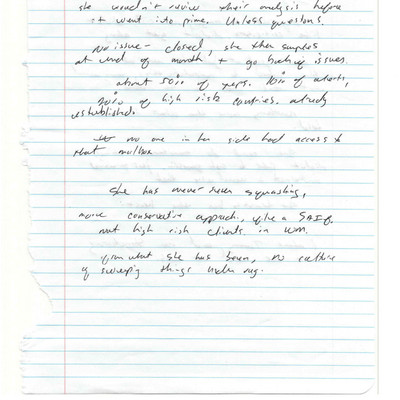 she wouldn't review their analysis before
it went into prime. Unless questions.
No issue - closed, she then samples
at end of month + go back if issues.
about 50% of reps. 10% of alerts,
20% of high risk countries. already
established.
no one in her side had access to
that mailbox
She has never seen squashing,
more conservative approach, file a SAR if
not high risk clients in WM.
from what she has been, no culture
of sweeping things under rug.